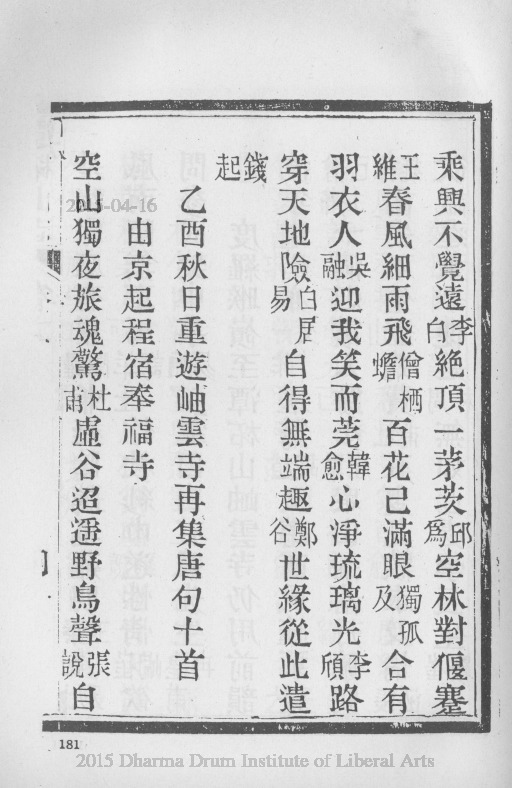 乘興不覺遠李白絕頂一茅茨邱為空林對偃蹇
王維春風細雨飛僧栖蟾百花已滿眼獨孤及合有
羽衣人吳融迎我笑而莞韓愈心淨琉璃光李頎路
穿天地險白居易自得無端趣鄭谷世緣從此遣
錢起
乙酉秋日重遊岫雲寺再集唐句十首
由京起程宿奉福寺
空山獨夜旅魂驚杜甫虛谷迢遞野鳥聲張說自
181
2015-04-16
2015 Dharma Drum Institute of Liberal Arts